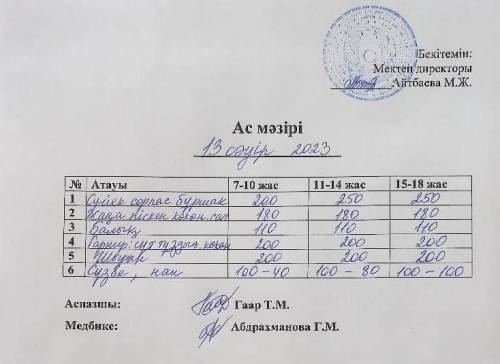 Бекітемін:
Мектеп директоры
Айтбаева М.Ж.
Ас мәзірі
13 сәуір 2023
№ Атауы 7-10 жас 11-14 жас 15-18 жас
1 Сүйек сорпас бұршақ 200 250 250
2 Жаңа піскен көкөн. сал 180 180 180
3 Балық 110 110 110
4 Гарнир: сүт тұздығ. көкөн 200 200 200
5 200 200 200
6 Сүзбе, нан 100-40 100-80 100-100
Аспазшы: Гаар Т.М.
Медбике: Абдрахманова Г.М.